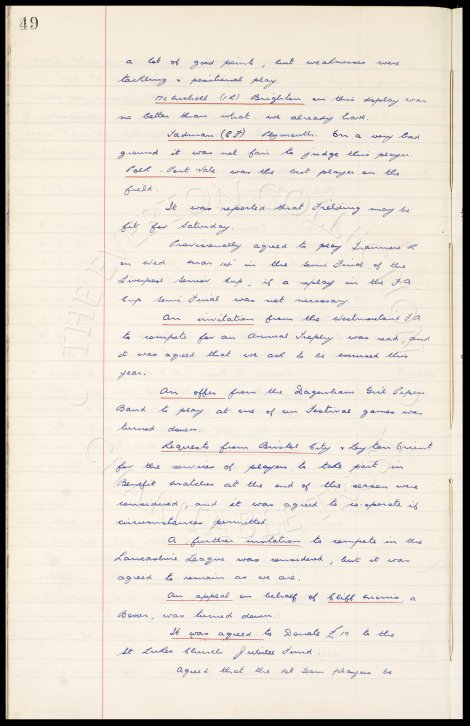 49
a lot of good points, but weaknesses were
tackling & positional play.
(IR) Brighton on this display was
no better than what we already have.
Tadman (CF) Plymouth. On a very bad
ground it was not fair to judge this player.
Port Vale was the best player on the
field.
It was reported that Fielding may be
fit for Saturday.
Provisionally agreed to play Tranmere R
on Wed in the Semi Final of the
Liverpool Senior Cup, if a replay in the F.A
Cup Semi Final was not necessary.
An invitation from the Westmorland F.A
to compete for an Annual Trophy was read, and
it was agreed that we ask to be excused this
year.
An offer from the Dagenham Girl Pipers
Band to play at one of our Festival games was
turned down.
Requests from Bristol City & Leyton Orient
for the services of players to take part in
Benefit matches at the end of the season were
considered, and it was agreed to co-operate if
circumstances permitted
A further invitation to compete in the
Lancashire League was considered, but it was
agreed to remain as we are.
An appeal on behalf of Cliff a
Boxer, was turned down.
It was agreed to Donate £10 to the
St Lukes Church Jubilee Fund.
Agreed that the 1st Team players be
THE EVERTON COLLECTION
CHARITABLE TRUST